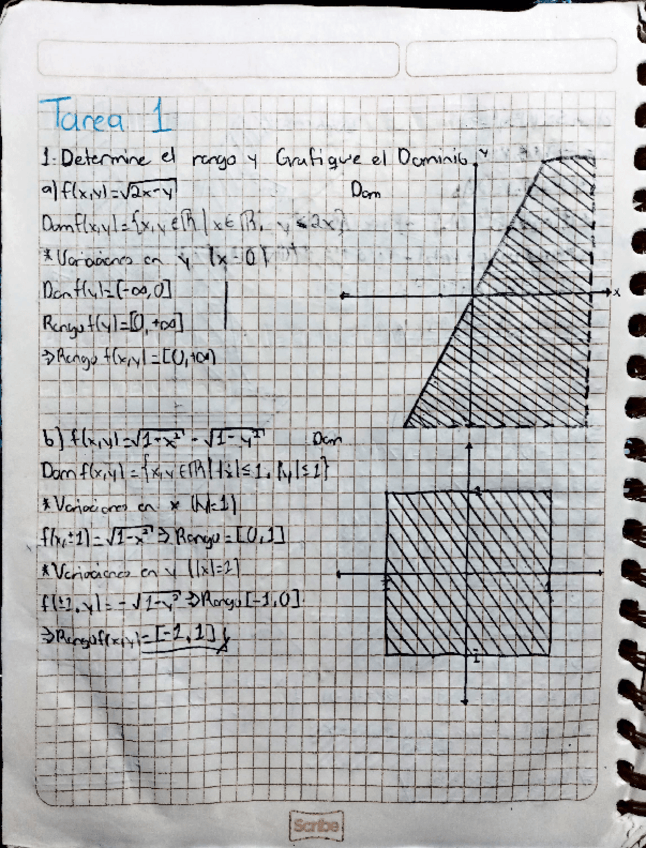 Tarea 1
1. Determine el rango y Grafique el Dominio
a) f(x,y)=√2x-y
Dom
y
x
Dom f(x,y)={x,y∈ℝ | x∈ℝ, y≤2x}
*Variaciones en y (x=0)
Dom f(y)=[-∞,0]
Rango f(y)=[0,+∞]
⇒Rango f(x,y)=[0,+∞)
b) f(x,y)=√1-x² - √1-y²
Dom
Dom f(x,y)={x,y∈ℝ | |x|≤1, |y|≤1}
*Variaciones en x (|y|=1)
f(x,±1)=√1-x² ⇒Rango=[0,1]
*Variaciones en y (|x|=1)
f(±1,y)=-√1-y² ⇒Rango[-1,0]
⇒Rango f(x,y)=[-1,1]
Scribe